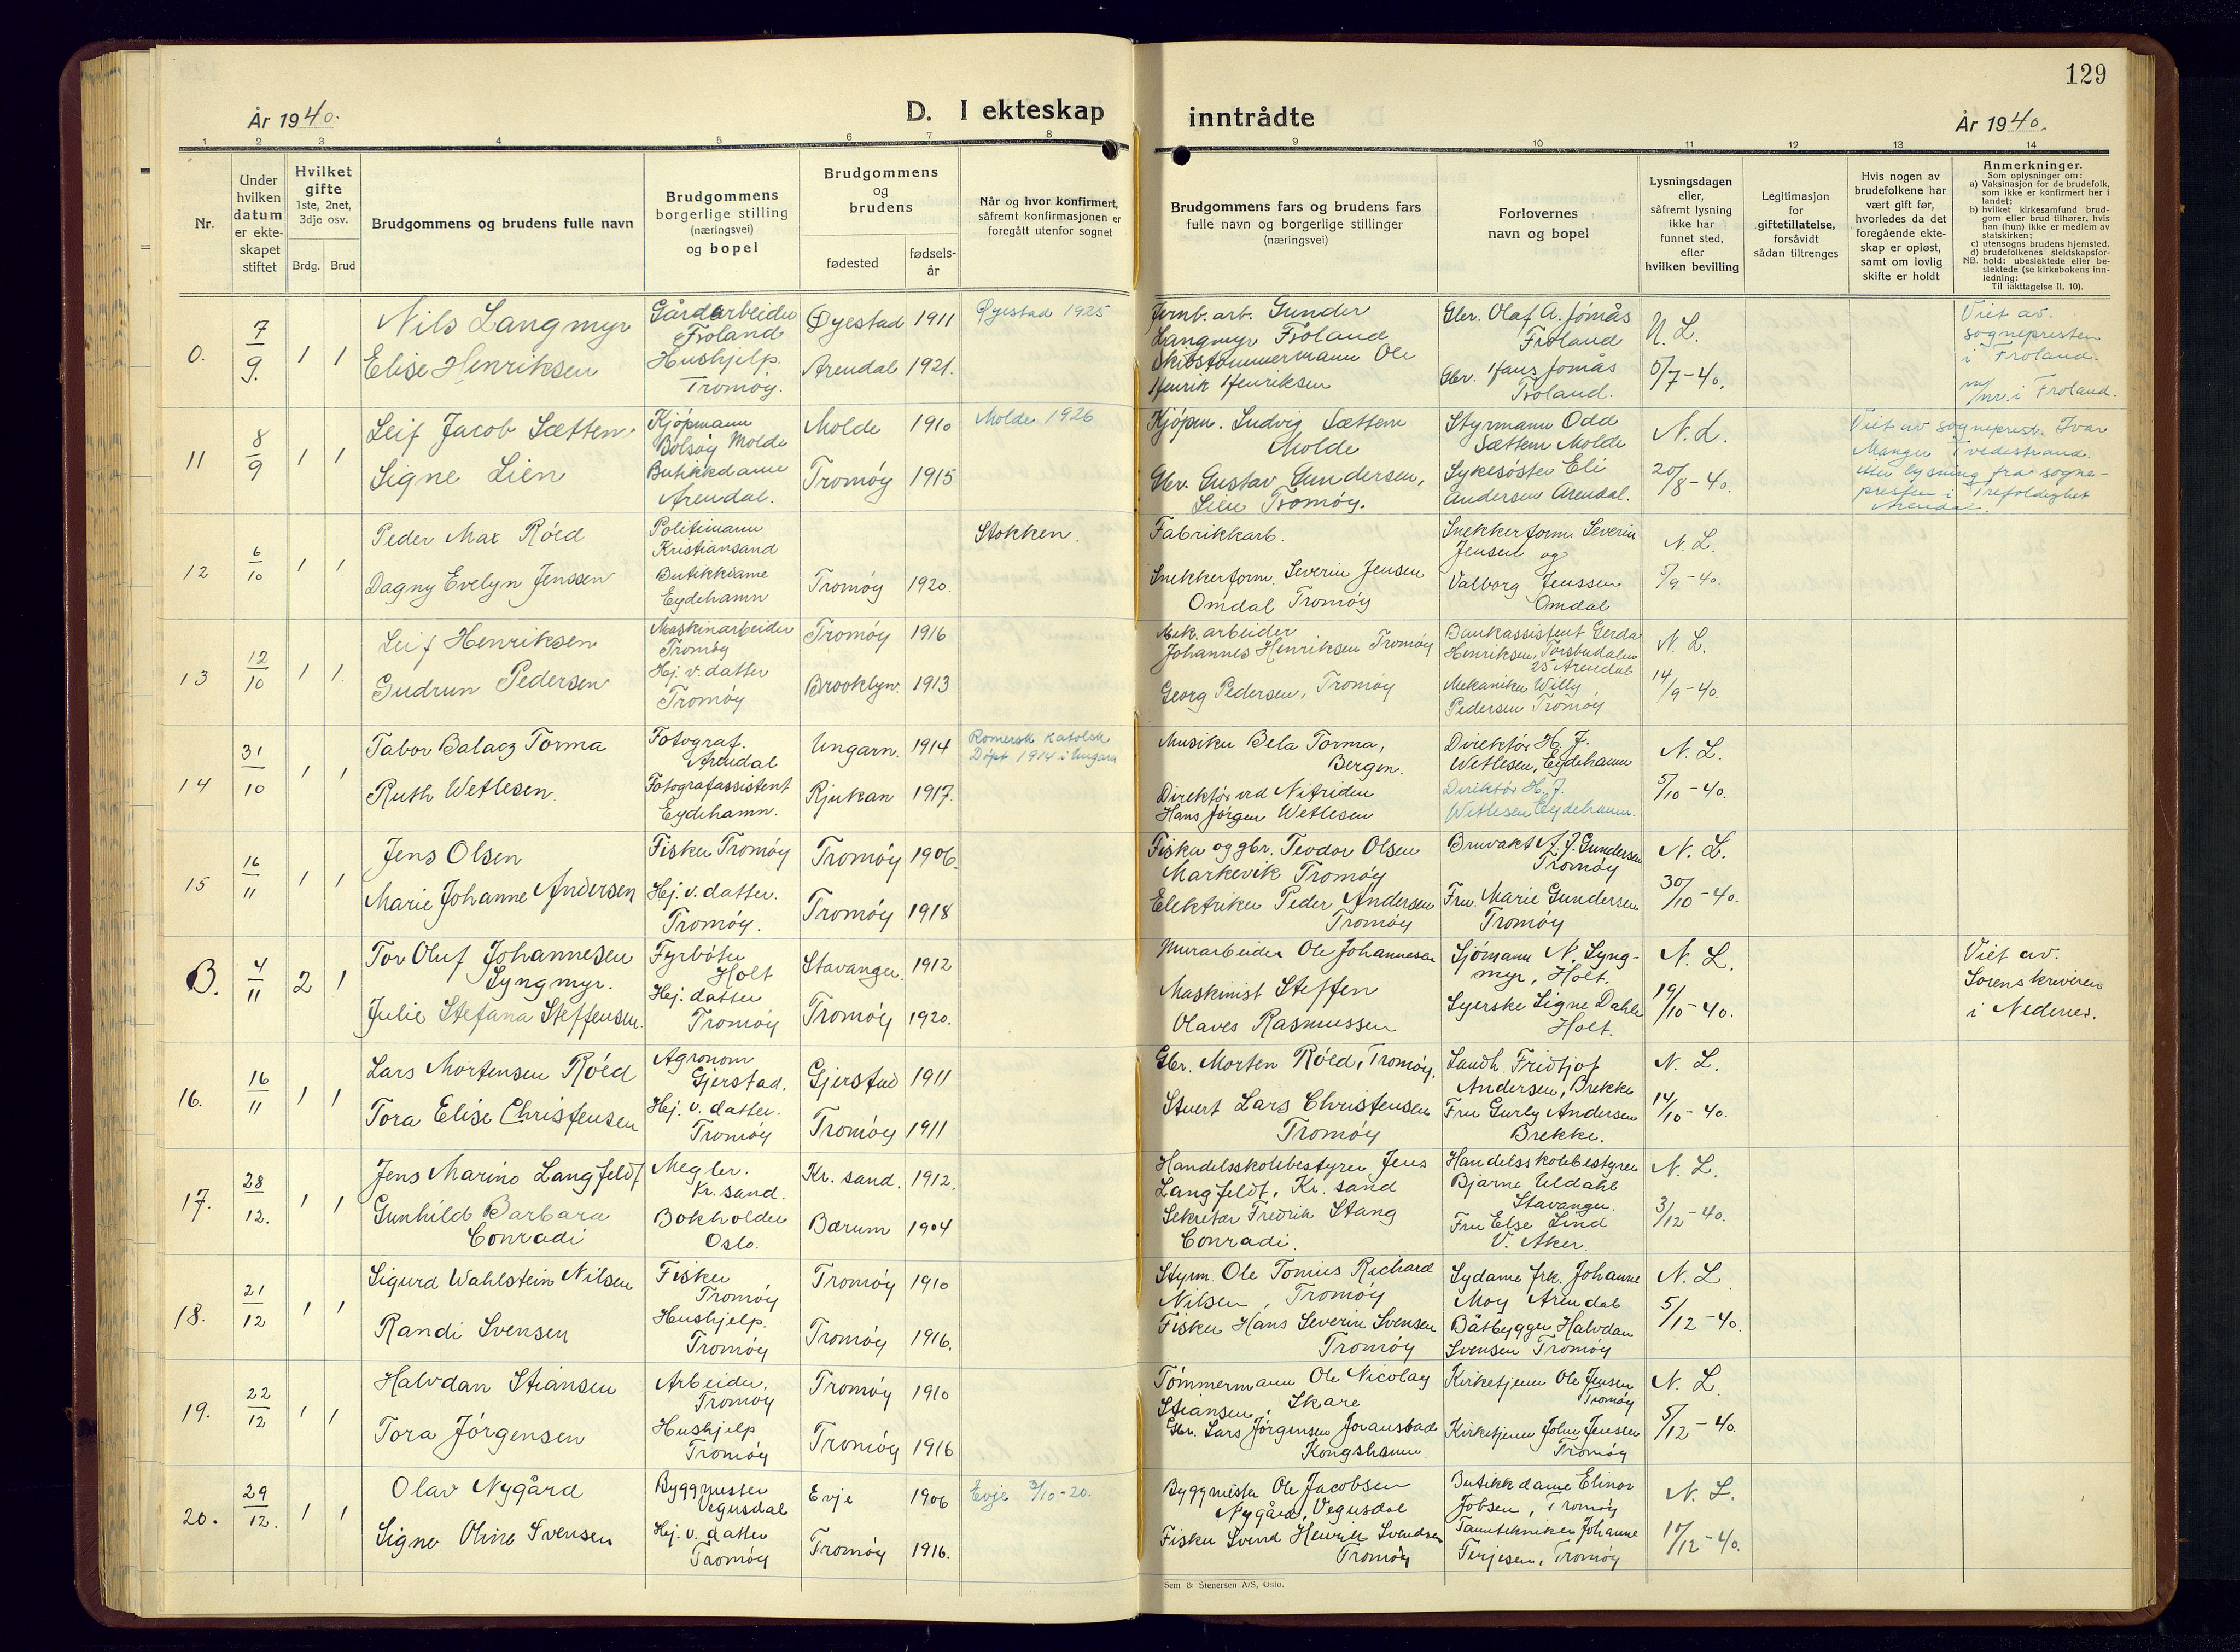 129
År 1940.
D. I ekteskap inntrådte
År 1940.
1 2 3 4 5 6 7 8 9 10 11 12 13 14
Nr.
Under hvilken datum er ekteskapet stiftet
Hvilket gifte 1ste, 2net, 3dje osv.
Brdg. Brud
Brudgommens og brudens fulle navn
Brudgommens borgerlige stilling (næringsvei) og bopel
Brudgommens og brudens
fødested
fødsels-år
Når og hvor konfirmert, såfremt konfirmasjonen er foregått utenfor sognet
Brudgommens fars og brudens fars fulle navn og borgerlige stillinger (næringsvei)
Forlovernes navn og bopel
Lysningsdagen eller, såfremt lysning ikke har funnet sted, efter hvilken bevilling
Legitimasjon for giftetillatelse, forsåvidt sådan tiltrenges
Hvis nogen av brudefolkene har vært gift før, hvorledes da det foregående ekteskap er opløst, samt om lovlig skifte er holdt
Anmerkninger.
Som oplysninger om:
a) Vaksinasjon for de brudefolk, som ikke er konfirmert her i landet;
b) hvilket kirkesamfund brudgom eller brud tilhører, hvis han (hun) ikke er medlem av statskirken;
c) utensogns brudens hjemsted.
d) brudefolkenes slektskapsforhold: ubeslektede eller beslektede (se kirkebokens innledning:
NB.
Til iakttagelse II. 10).
0. 7/9. 1 1
Nils Langmyr
Gårdarbeider Froland
Øyestad 1911
Øyestad 1925
Jernb. arb. Gunder Langmyr Froland
Gbr. Olaf A. Jomås Froland
N. L.
Viet av sognepresten i Froland.
Elise Henriksen
Hushjelp. Tromøy.
Arendal 1921.
Skibstømmermann Ole Henrik Henriksen
Gbr. Hans Jomås Froland.
5/7-40.
m/nr. i Froland.
11 8/9 1 1
Leif Jacob Sættem
Kjøpmann Bolsøy Molde
Molde 1910
Molde 1926
Kjøpm. Ludvig Sættem Molde
Styrmann Odd Sættem Molde
N. L.
Viet av sogneprest. Ivar Mangu Tvedestrand. etter lysning fra sognepresten i Trefoldighet Arendal.
Signe Lien
Butikkdame Arendal.
Tromøy 1915
Gbr. Gustav Gundersen, Lien Tromøy.
Sykesøster Eli Andersen Arendal.
20/8-40.
12 6/10 1 1
Peder Max Röed
Politimann Kristiansand
Stokken.
Fabrikkarb.
Snekkerform. Severin Jensen og
N. L.
Dagny Evelyn Jenssen
Butikkdame Eydehamn
Tromøy 1920.
Snekkerform. Severin Jensen Omdal Tromøy
Valborg Jenssen Omdal
5/9-40.
13 12/10 1 1.
Leif Henriksen
Maskinarbeider Tromøy
Tromøy 1916
Mek. arbeider Johannes Henriksen Tromøy
Bankassistent Gerda Henriksen, Torsbudalen 25 Arendal
N. L.
Gudrun Pedersen
Hj. v. datter Tromøy
Brooklyn. 1913
Georg Pedersen, Tromøy
Mekaniker Willy Pedersen Tromøy
14/9-40.
14 31/10 1 1
Tabor Balacz Torma
Fotograf. Arendal
Ungarn. 1914
Romersk katolsk Döpt 1914 i Ungarn
Musiker Bela Torma, Bergen.
Direktör H. J. Wetlesen, Eydehamn
N. L.
Ruth Wetlesen.
Fotografassistent Eydehamn.
Rjukan 1917.
Direktør ved Nitriden Hans Jörgen Wetlesen
Direktör H. J. Wetlesen Eydehamn.
5/10-40.
15 16/11 1 1
Jens Olsen
Fisker Tromøy
Tromøy 1906.
Fisker og gbr. Teodor Olsen Markevik Tromøy
Bruvakt A. J. Gundersen Tromøy
N. L.
Marie Johanne Andersen
Hej. v. datter. Tromøy.
Tromøy 1918
Elektriker Peder Andersen Tromøy
Fru. Marie Gundersen Tromøy
30/10-40.
B. 4/11 2 1
Tor Oluf Johannesen Lyngmyr.
Fyrbøter Holt
Stavanger. 1912
Murarbeider Ole Johannesen
Sjømann N. Lyngmyr, Holt.
N. L.
Viet av. Sorenskriveren i Nedenes.
Julie Stefana Steffensen.
Hej. datter Tromøy
Tromøy 1920.
Maskinist Steffen Olaves Rasmussen
Syerske Signe Dahle Holt.
19/10-40.
16. 16/11 1 1
Lars Mortensen Röed
Agronom Gjerstad.
Gjerstad 1911
Gbr. Morten Röed, Tromøy.
Landh. Fridtjof Andersen, Brekke
N. L.
Tora Elise Christensen
Hej. v. datter. Tromøy
Tromøy 1911
Stuert Lars Christensen Tromøy
Fru Gurly Andersen Brekke.
14/10-40.
17. 28/12. 1 1
Jens Marino Langfeldt
Megler. Kr. sand.
Kr. sand. 1912.
Handelsskolebestyrer Jens Langfeldt, Kr. sand
Handelsskolebestyrer Bjarne Uldahl Stavanger.
N. L.
Gunhild Barbara Conradi
Bokholder Oslo.
Bærum 1904
Sekretær Fredrik Stang Conradi.
Fru Else Lind V. Aker.
3/12-40.
18. 21/12 1 1
Sigurd Wahlstein Nilsen
Fisker Tromøy
Tromøy 1910
Styrm. Ole Tomius Richard Nilsen, Tromøy
Sydame frk. Johanne Moy Arendal
N. L
Randi Svensen
Hushjelp. Tromøy
Tromøy 1916.
Fisker Hans Severin Svensen Tromøy
Båtbygger Halvdan Svensen Tromøy
5/12-40.
19. 22/12 1 1
Halvdan Stiansen
Arbeider, Tromøy
Tromøy 1910
Tømmermann Ole Nicolay Stiansen, Skare
Kirketjener Ole Jensen Tromøy
N. L.
Tora Jörgensen
Hushjelp Tromøy
Tromøy 1916
Gbr. Lars Jörgensen Joranstad Kongshamn.
Kirketjener John Jensen Tromøy
5/12-40.
20. 29/12. 1 1
Olav Nygård
Byggmester Vegusdal
Evje 1906
Evje 3/10-20.
Byggmester Ole Jacobsen Nygård, Vegusdal
Butikkdame Elinor Jobsen, Tromøy
N. L.
Signe Oline Svensen
Hj. v. datter Tromøy
Tromøy 1916.
Fisker Svend Henrik Svendsen Tromøy
Tanntekniker Johanne Terjesen, Tromøy
10/12-40.
Sem & Stenersen A/S, Oslo.